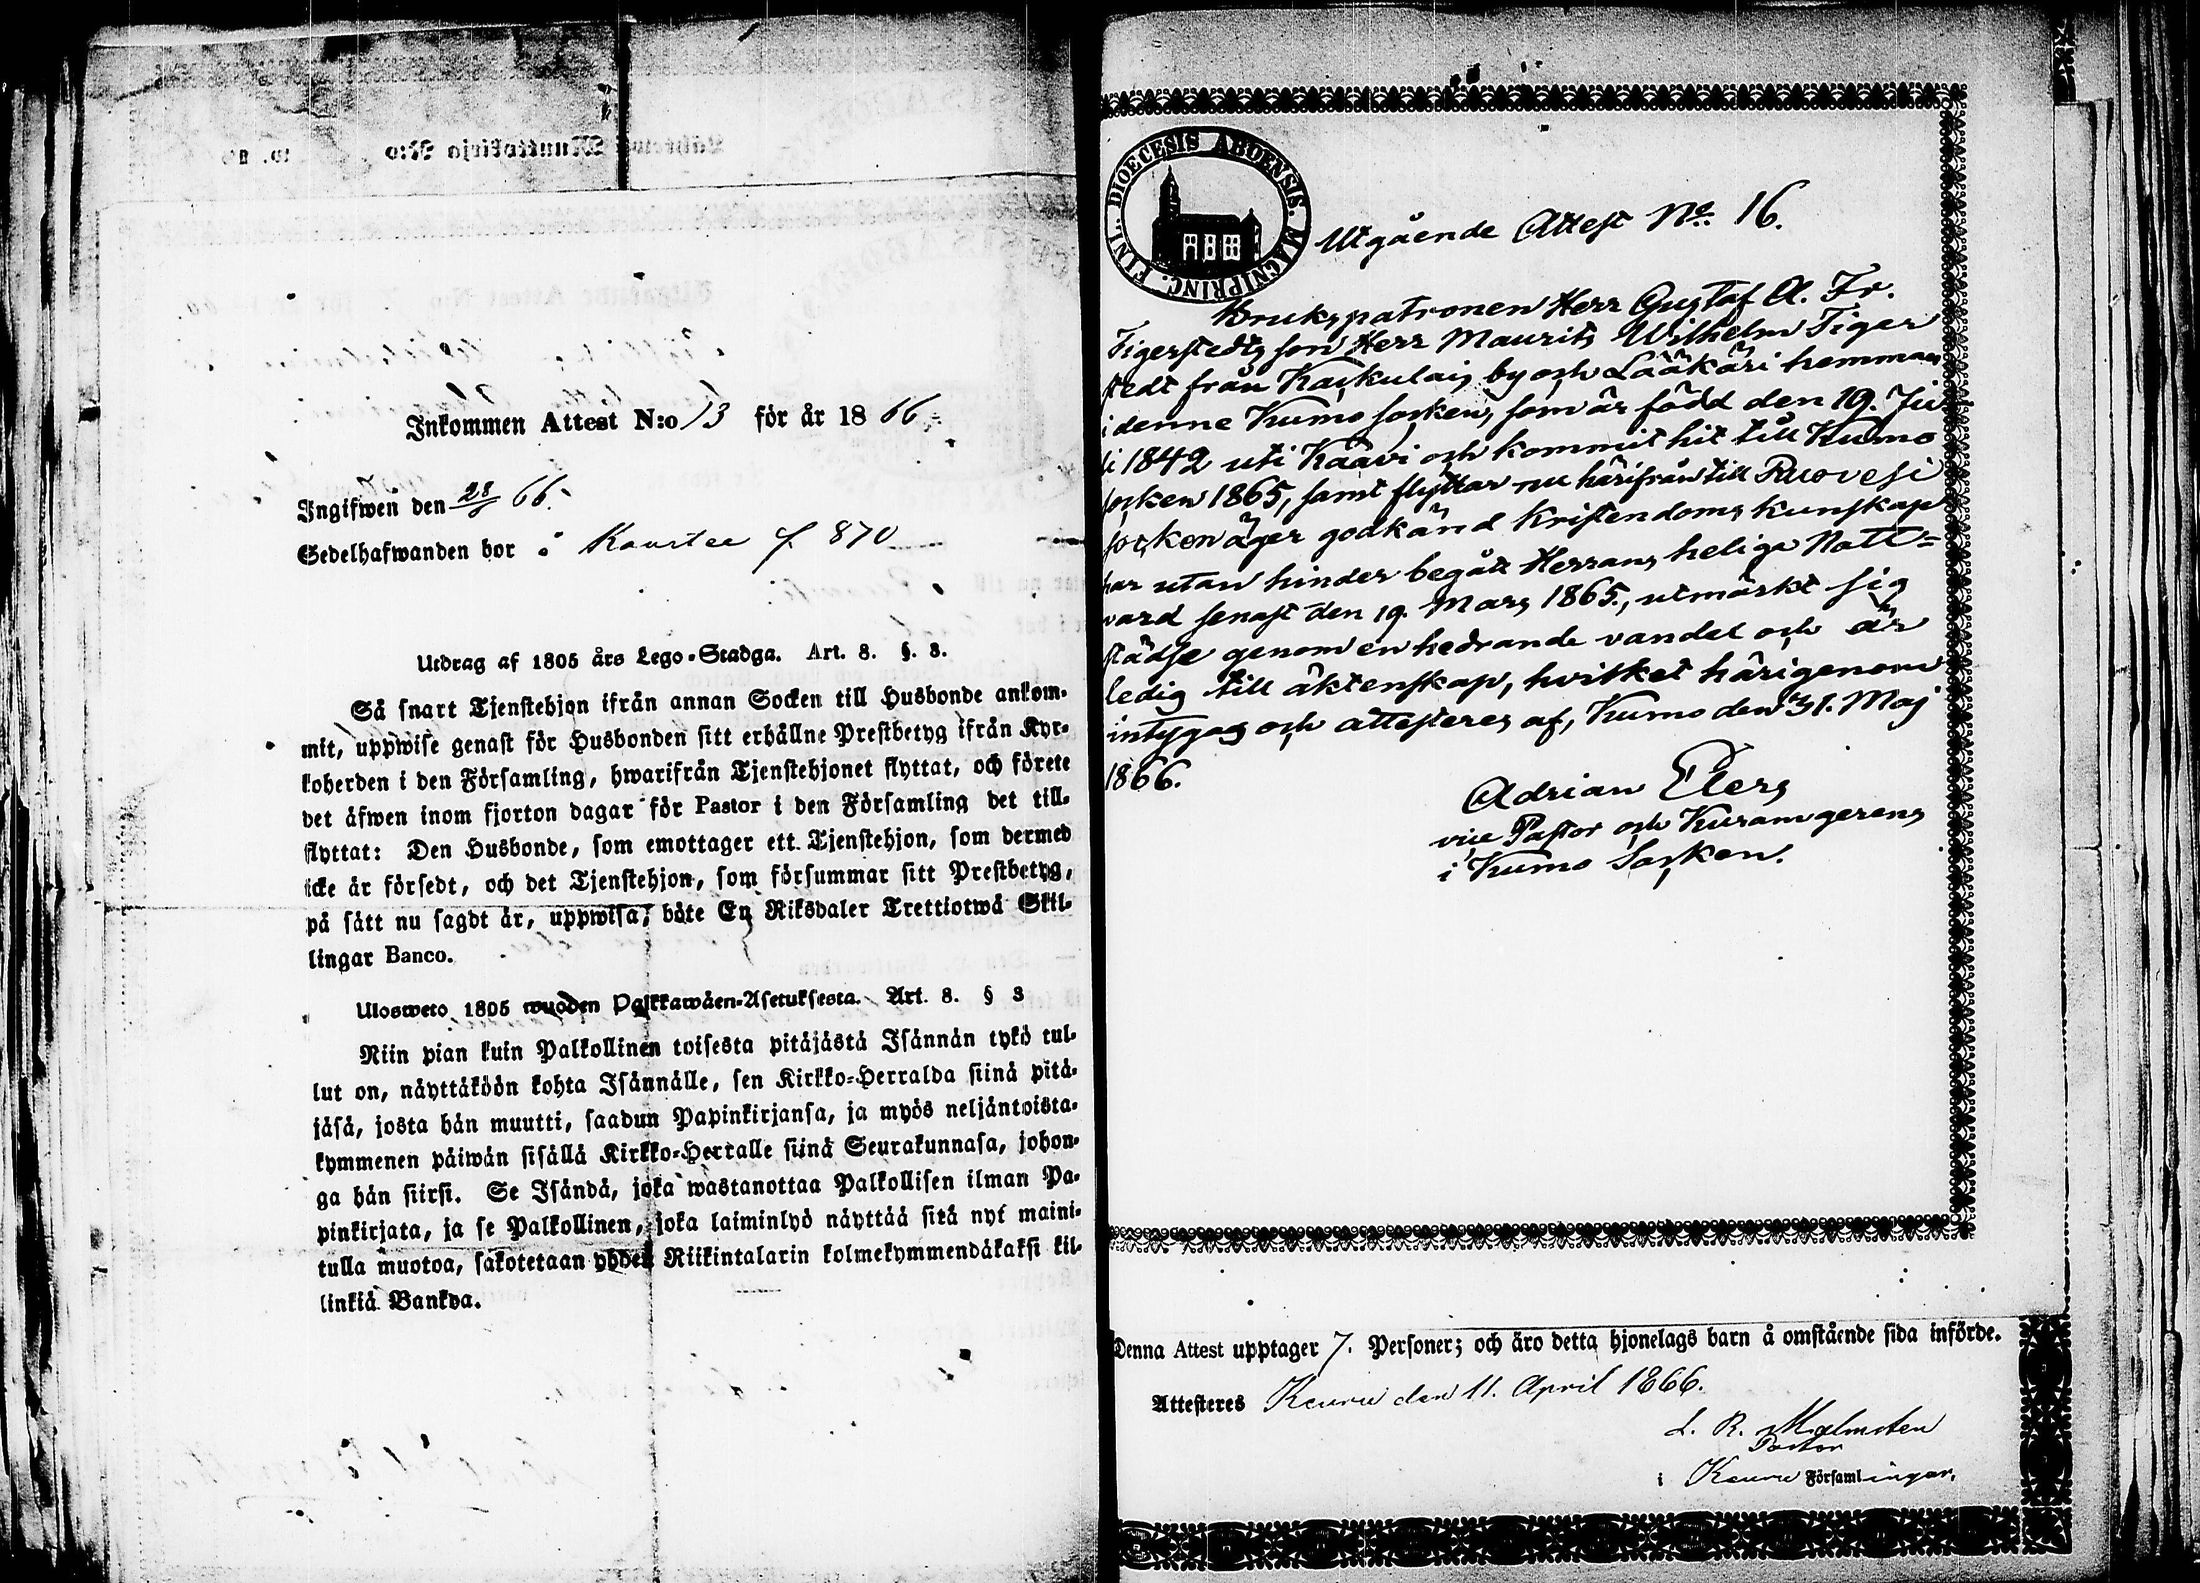 Inkommen Attest N:o 13 för år 1866.
Ingifwen den 28/5 66.
Sedelhafwanden bor i Kaurtee f. 870
Utdrag af 1805 års Lego-Stadga. Art. 8. §. 3.
Så snart Tjenstehjon ifrån annan Socken till Husbonde ankom-
mit, uppwise genast för Husbonden sitt erhållne Prestbetyg ifrån Kyr-
koherden i den Församling, hwarifrån Tjenstehjonet flyttat, och förete
det äfwen inom fjorton dagar för Pastor i den Församling det till-
flyttat: Den Husbonde, som emottager ett Tjenstehjon, som dermed
icke är försedt, och det Tjenstehjon, som försummar sitt Prestbetyg,
på sätt nu sagdt är, uppwisa, böte En Riksdaler Trettiotwå Skil-
lingar Banco.
Ulosweto 1805 wuoden Palkkawäen-Asetuksesta. Art. 8. § 3
Niin pian kuin Palkollinen toisesta pitäjästä Isännän tykö tul-
lut on, näyttäköön kohta Isännälle, sen Kirkko-Herralda siinä pitä-
jäsä, josta hän muutti, saadun Papinkirjansa, ja myös neljäntoista-
kymmenen päiwän sisällä Kirkko-Herralle siinä Seurakunnasa, johon-
ga hän siirsi. Se Isändä, joka wastanottaa Palkollisen ilman Pa-
pinkirjata, ja se Palkollinen, joka laiminlyö näyttää sitä nyt maini-
tulla muotoa, sakotetaan yhden Riikintalarin kolmekymmendäkaksi kil-
linkiä Bankoa.
FINL. DIOECESIS ABOENSIS. MAGNIPRINC.
Utgående Attest No. 16.
Brukspatronen Herr Gustaf A. Fr.
Tigerstedts son Herr Maurits Wilhelm Tiger
stedt från Kaskulais by och Lääkäri hemman
i denne Kumo socken, som är född den 19. Ju
li 1842 uti Kaavi och kommit hit till Kumo
socken 1865, samt flyttar nu härifrån till Ruovesi
socken äger godkänd Kristendoms kunskap
har utan hinder begått Herrans heliga Natt=
vard senast den 19. Mars 1865., utmärkt sig
städse genom en hedrande vandel och är
ledig till äktenskap, hvilket härigenom
intygas och attesteres af, Kumo den 31. Maj
1866.
Adrian Elers
vice Pastor och Kuramgerens
i Kumo Socken.
Denna Attest upptager 7. Personer; och äro detta hjonelags barn å omstående sida införde.
Attesteres Keuru den 11. April 1866.
L. R. Malmsten
Pastor
i Keuru Församlingar.